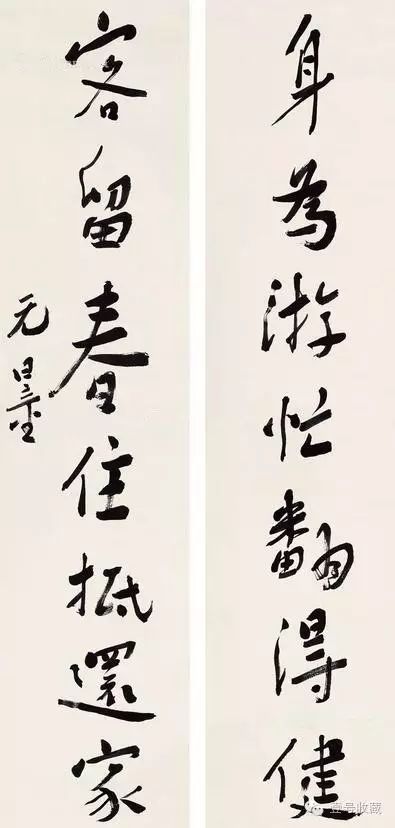 身為游忙翻得健
客留春住抵還家
无量
壹号收藏